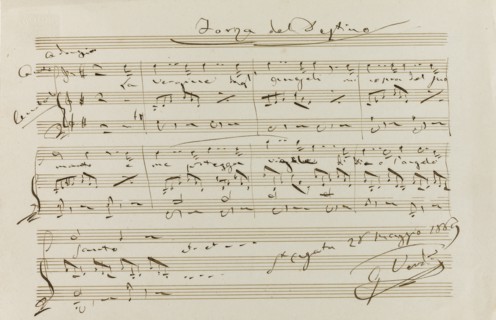 Forza del Destino
adagio
La vergine degl' angeli mi copra del suo
manto e me protegga vigile di Dio l'angelo
santo
St Agata 28 maggio
G Verdi